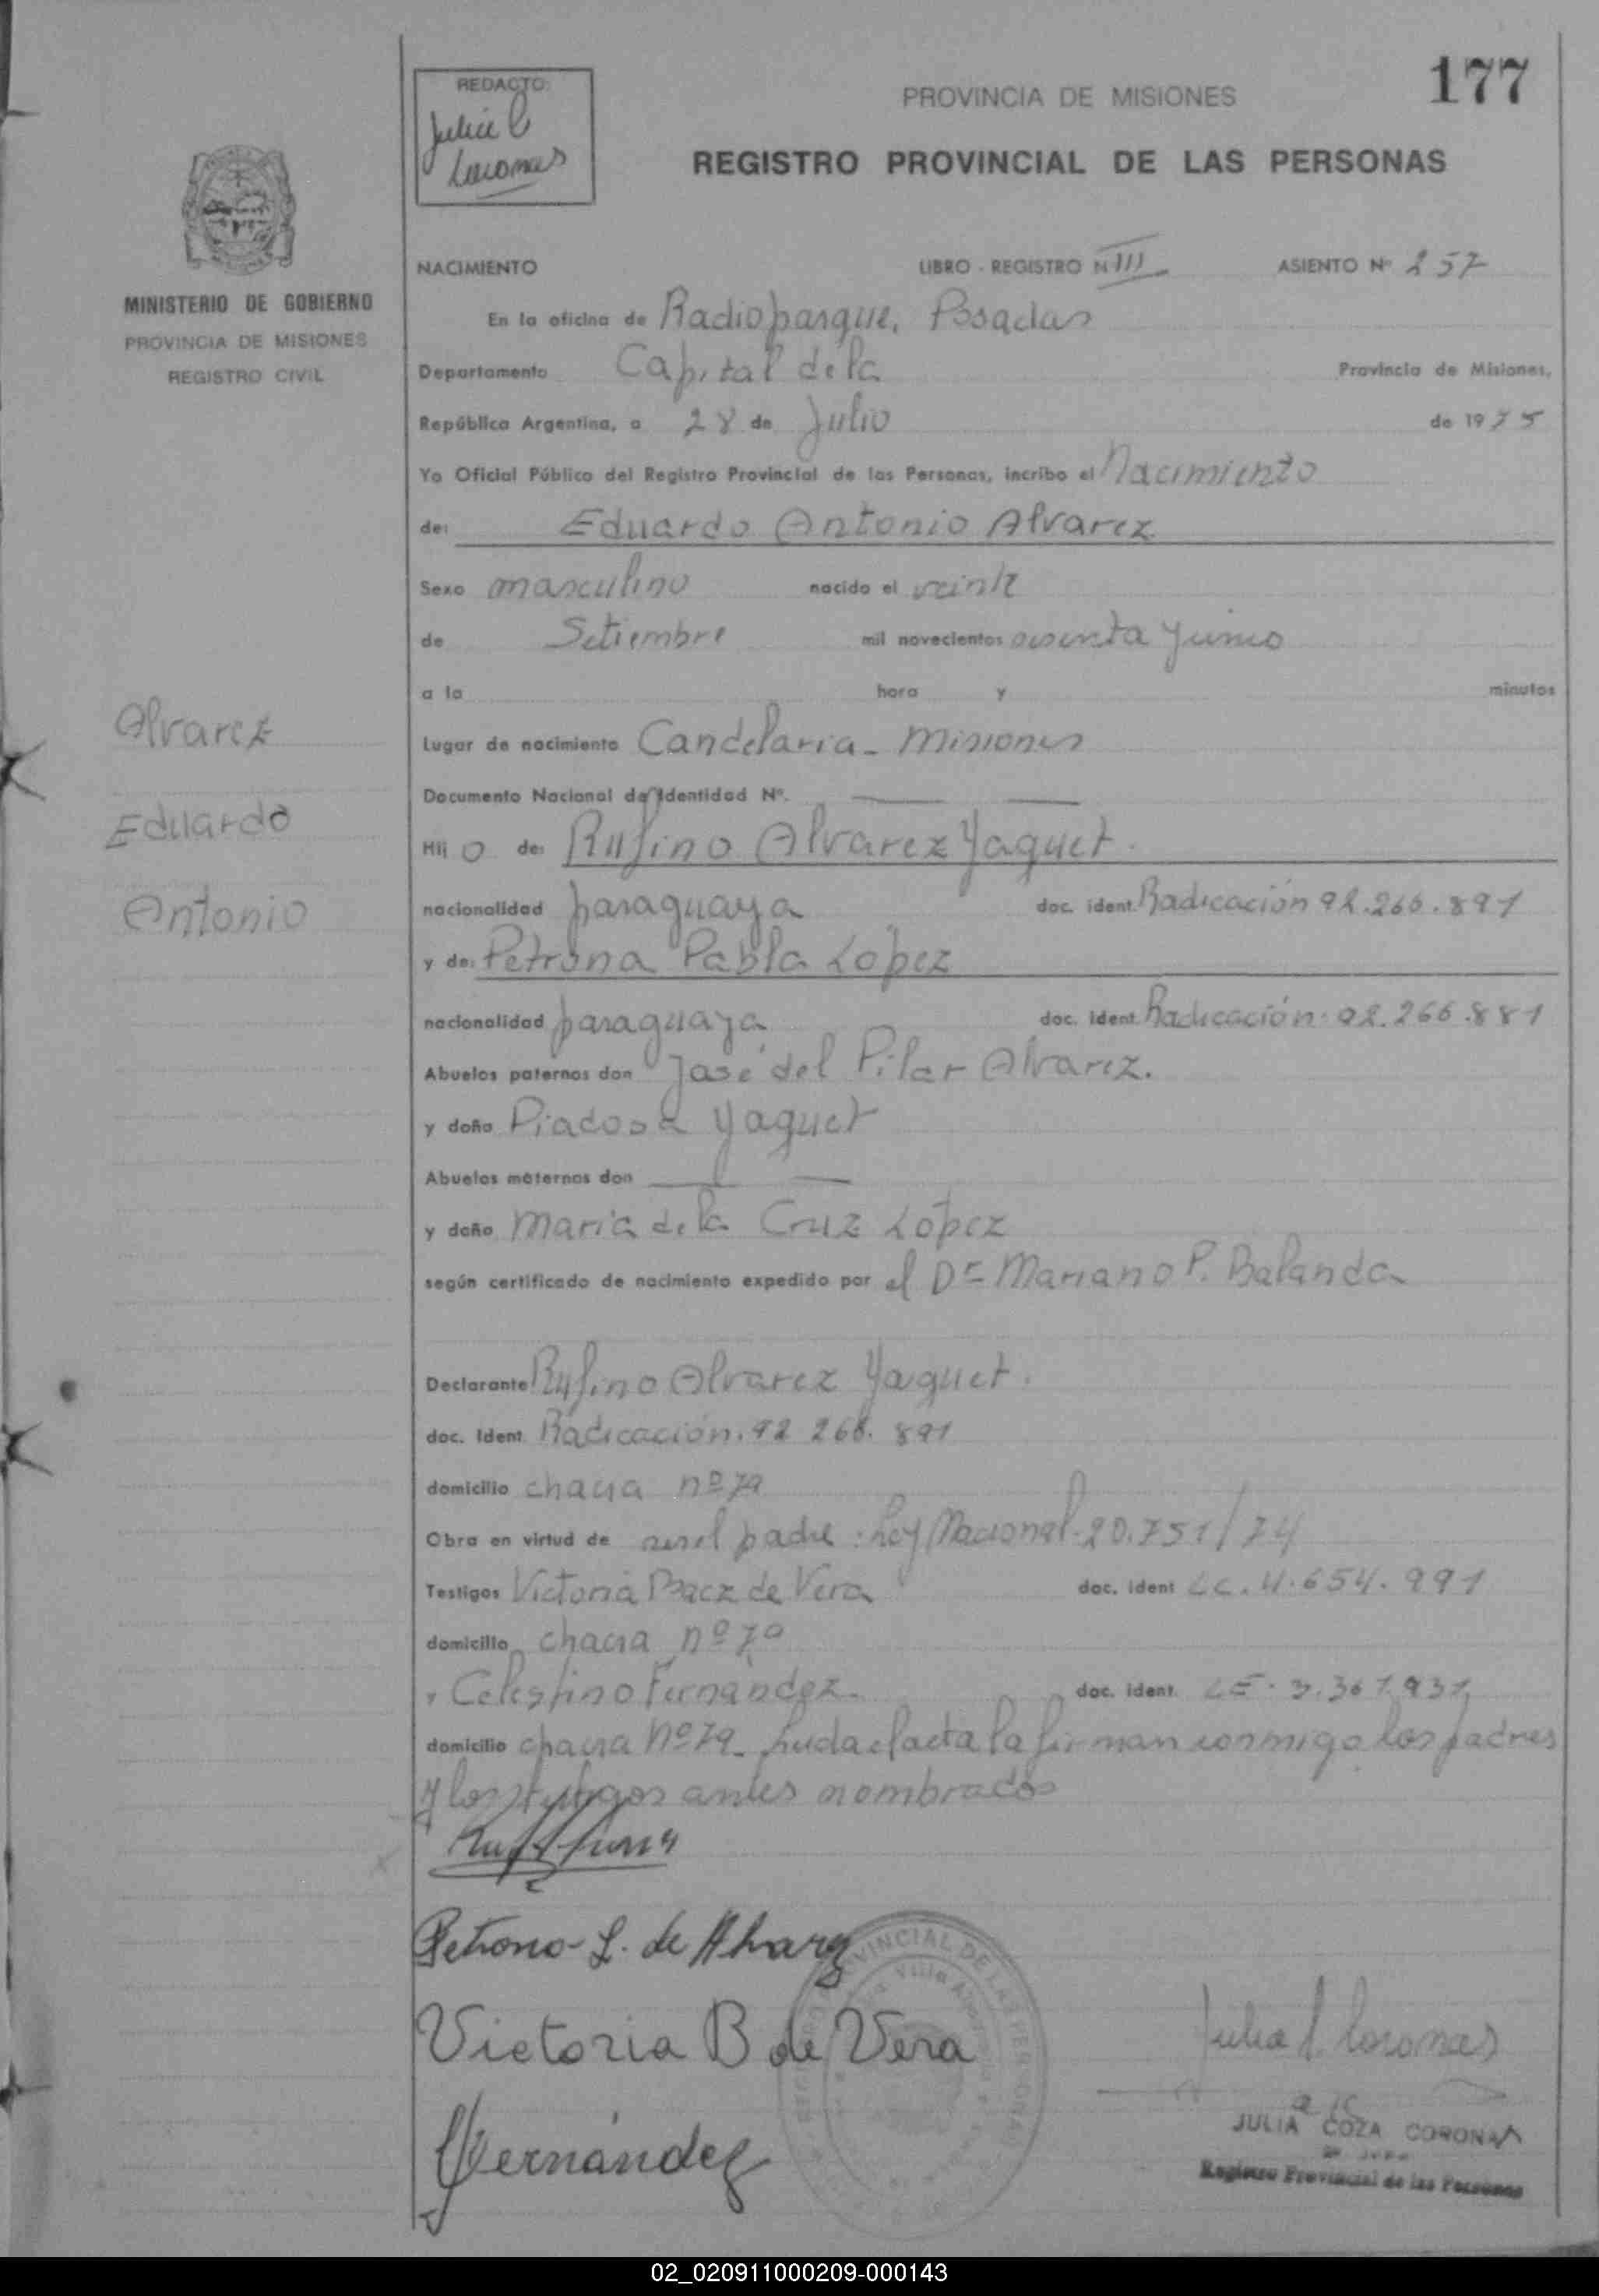 177
REDACTO:
Julia C
Coronas
PROVINCIA DE MISIONES
REGISTRO PROVINCIAL DE LAS PERSONAS
MINISTERIO DE GOBIERNO
PROVINCIA DE MISIONES
REGISTRO CIVIL
NACIMIENTO LIBRO - REGISTRO N III ASIENTO Nº 257
En la oficina de Radioparque, Posadas
Departamento Capital de la Provincia de Misiones,
República Argentina, a 28 de Julio de 1975
Yo Oficial Público del Registro Provincial de las Personas, incribo el Nacimiento
de: Eduardo Antonio Alvarez
Sexo masculino nacido el veinte
de Setiembre mil novecientos
a la hora y minutos
Alvarez
Eduardo
Antonio
Lugar de nacimiento Candelaria - Misiones
Documento Nacional de Identidad Nº. — —
Hij o de: Rufino Alvarez Yaguet.
nacionalidad paraguaya doc. ident. Radicación 92.266.891
y de: Petrona Pabla López
nacionalidad paraguaya doc. ident. Radicación 92.266.881
Abuelos paternos don José del Pilar Alvarez.
y doña Piadosa Yaguet
Abuelos maternos don — —
y doña Maria de la Cruz López
según certificado de nacimiento expedido por el Dr Mariano P. Balanda
Declarante Rufino Alvarez Yaguet.
doc. Ident. Radicación. 92 266. 891
domicilio chacra nº 79
Obra en virtud de ser el padre. Ley Nacional. 20.751/74
Testigos Victoria Baez de Vera doc. ident LC. 4.654.991
domicilio chacra nº 79
y Celestino Fernández. doc. ident. LE. 3.367.931
domicilio chacra Nº 79. Leida el acta la firman conmigo los padres
y los testigos antes nombrados
Petrona L. de Alvarez
Victoria B de Vera
Fernández
PROVINCIAL DE LAS PERSONAS
Villa
Julia C. Coronas
JULIA COZA CORONAS
Registro Provincial de las Personas
02_020911000209-000143